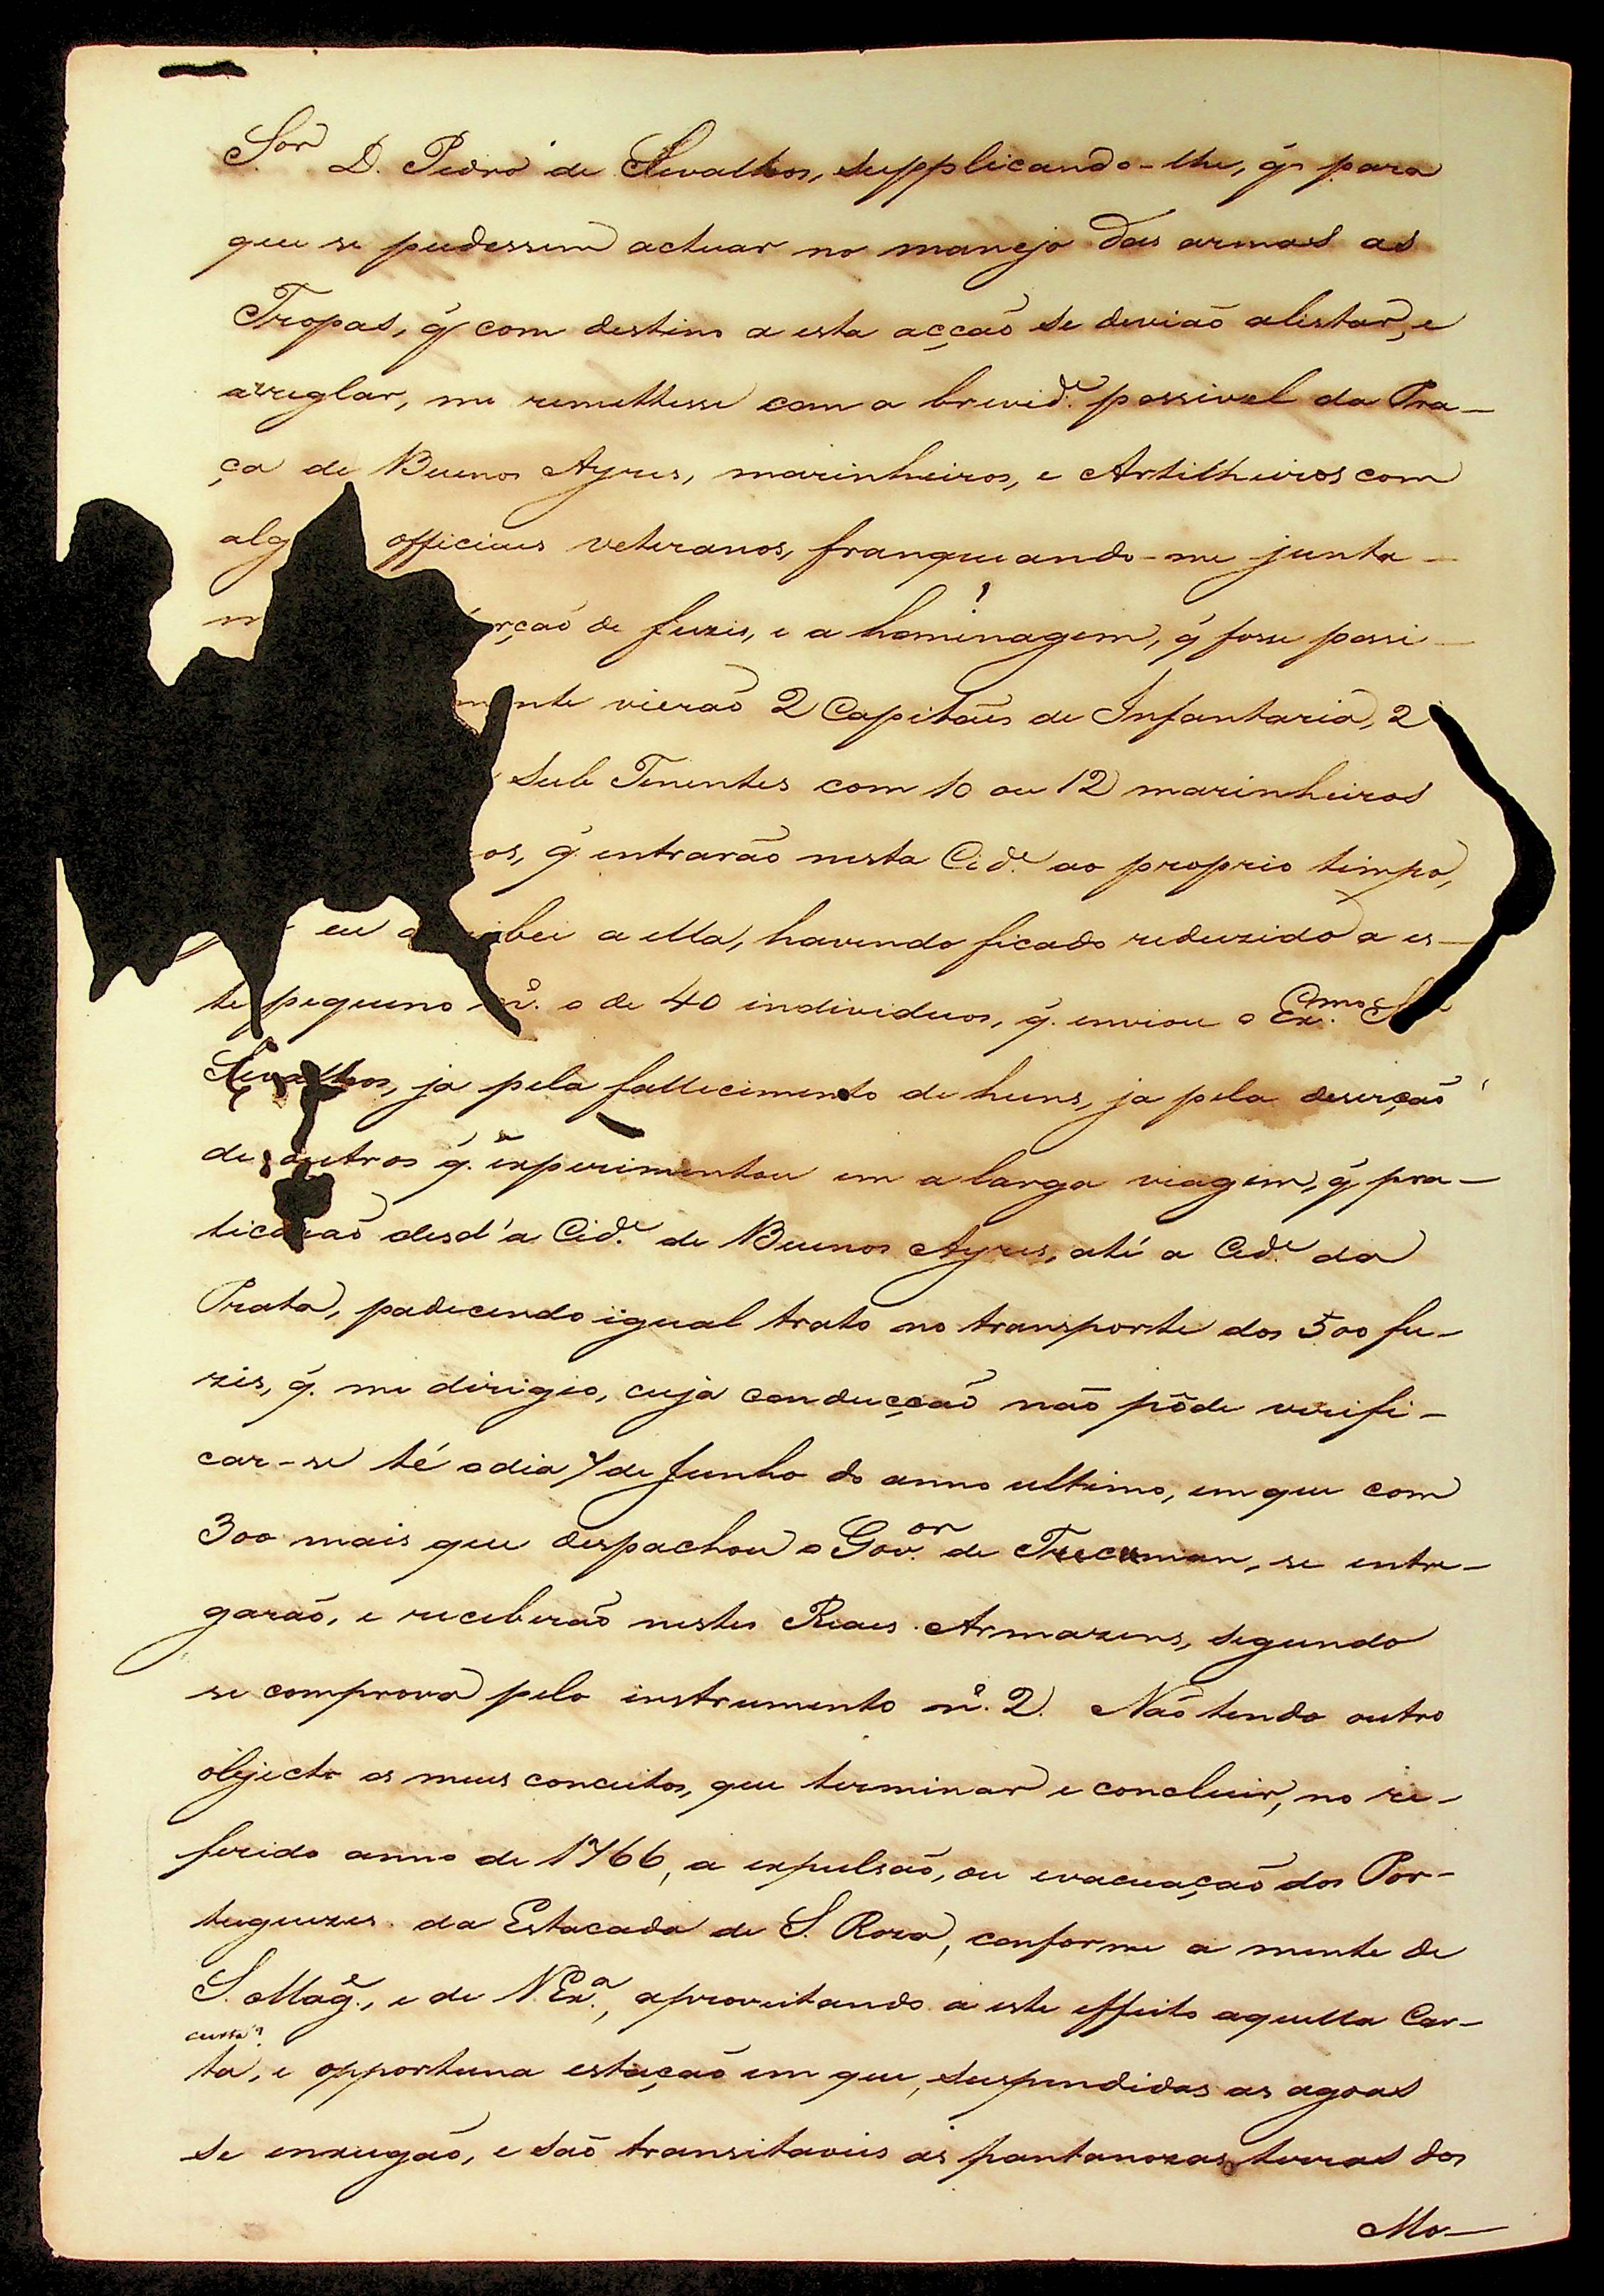 Sor. D. Pedro de Sevalhos, supplicando-lhe, q̃ para
que se pudessem actuar no manejo das armas as
Tropas, q̃ com destino a esta acção se devião alistar, e
arreglar, me remettesse com a brevide. possivel da Pra-
ça de Buenos Ayres, marinheiros, e Artilheiros com
alg officiaes veteranos, franqueando-me junta-
m rção de fuzis, e a homenagem, q̃ fosse possi-
mente vierão 2 Capitães de Infantaria, 2
Sub Tenentes com 10 ou 12 marinheiros
os, q̃. entrarão nesta Cide. ao proprio tempo,
eu a ibei a ella, havendo ficado reduzido a es-
te pequeno nº. o de 40 individuos, q̃. enviou o Exmo. S
Sevalhos, ja pela fallecimento de huns, ja pela deserção
de outros q̃. experimentou em a larga viagem, q̃ pra-
ticarão desd'a Cide. de Buenos Ayres, até a Cide. da
Prata, padecendo igual trato no transporte dos 500 fu-
zis, q̃. me dirigio, cuja conducção não pôde verifi-
car-se té o dia 7 de Junho do anno ultimo, em que com
300 mais que despachou o Govor. de Tucuman, se entre-
garão, e receberão nestes Reaes Armazens, segundo
se comprova pelo instrumento nº. 2. Não tendo outro
objecto os meus conceitos, que terminar e concluir, no re-
ferido anno de 1766, a expulsão, ou evacuação dos Por-
tuguezes da Estacada de S. Roza, conforme a mente de
S. Mage., e de V. Exa., aproveitando a este effeito aquella Cor-
curta?
ta, e opportuna estação em que, suspendidas as agoas
se enxugão, e são transitaveis as pantanozas terras dos
Mo-